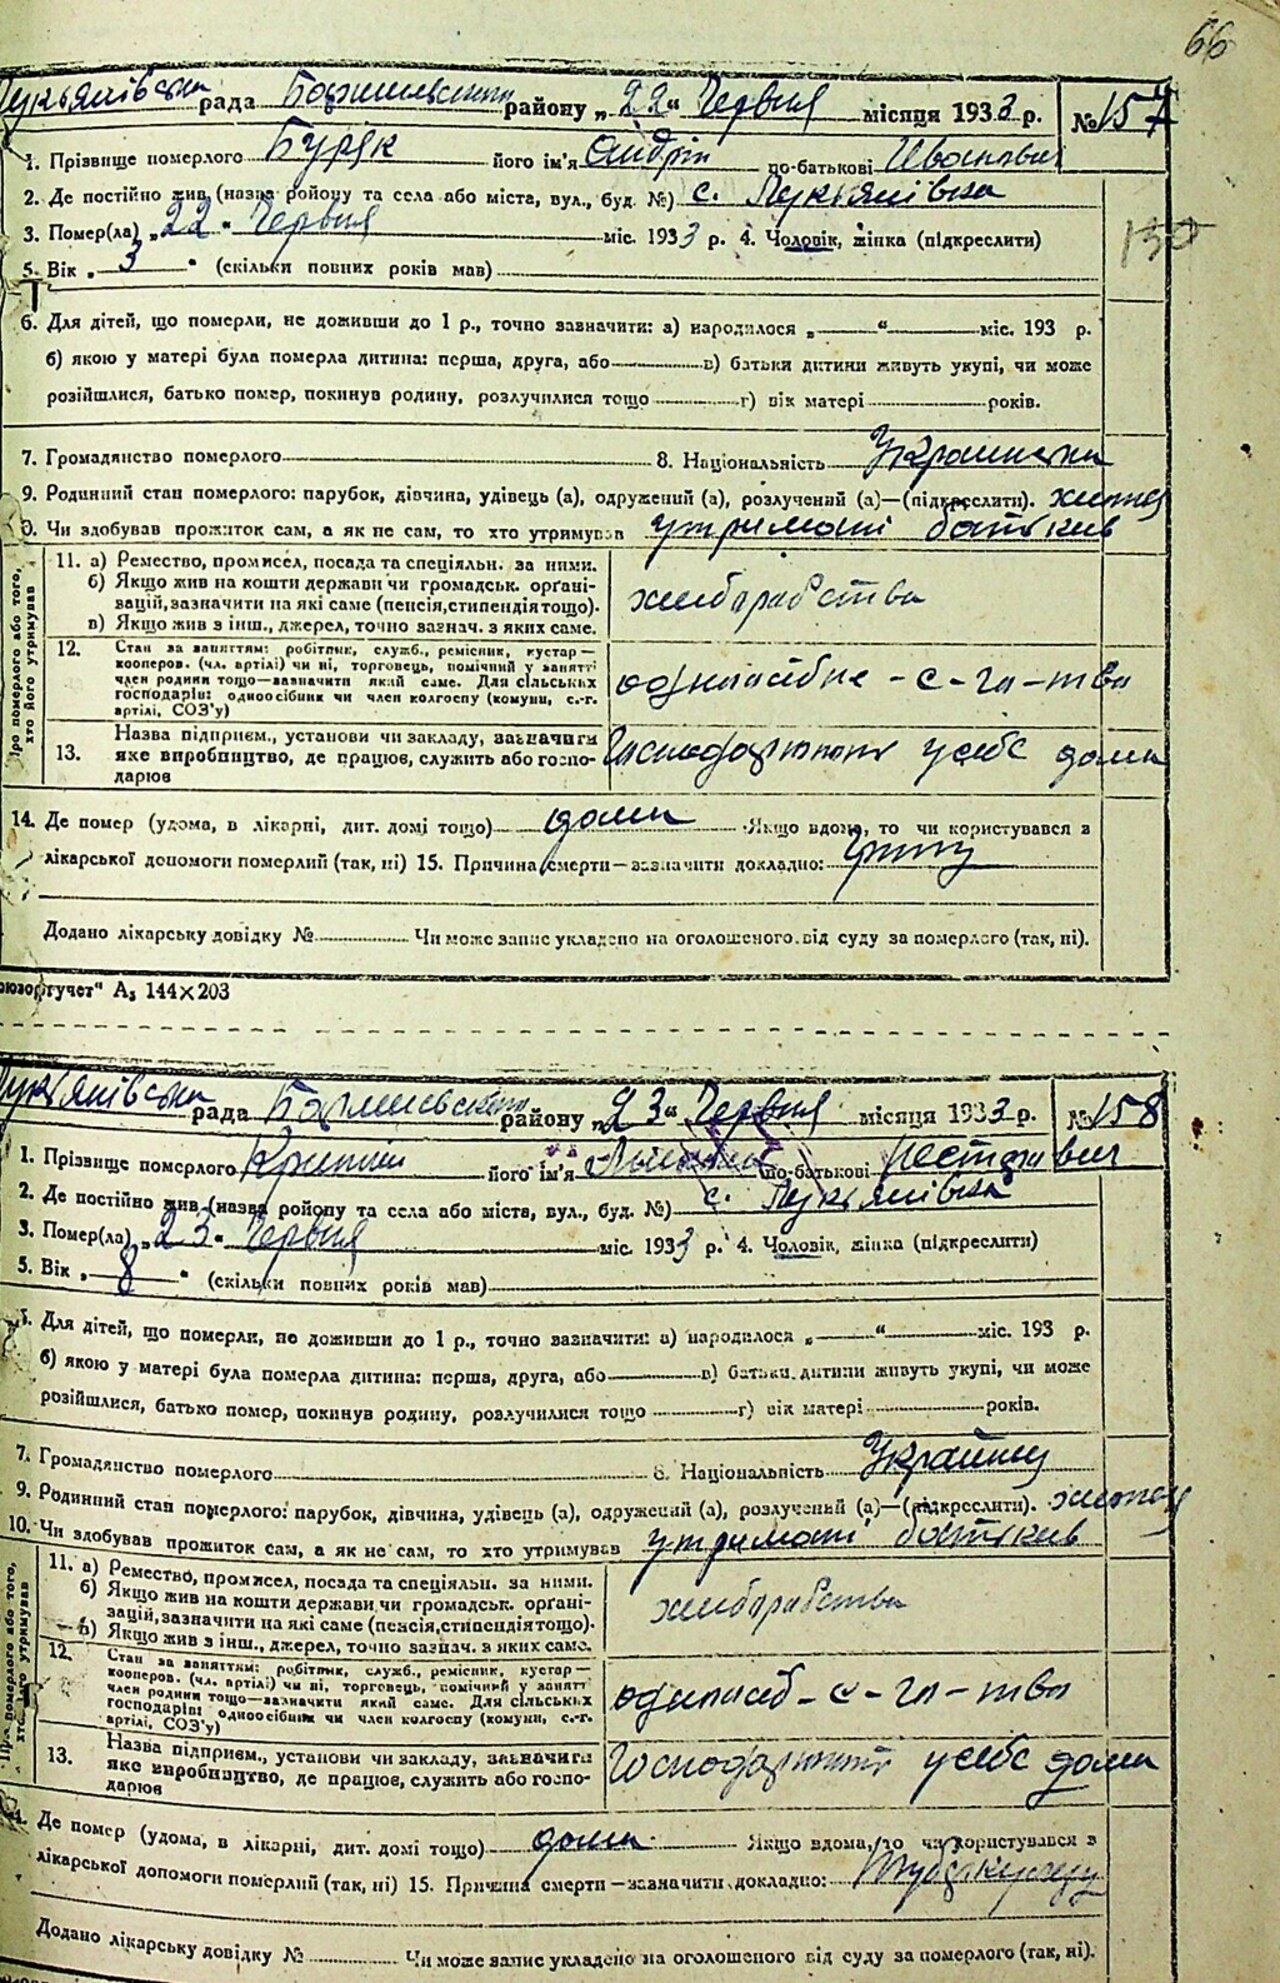 66
Лукьянівська рада Баришевського району „22“ Червня місяця 1933 р. № 157
1. Прізвище померлого Буряк його ім'я Андрій по-батькові Иванович
2. Де постійно жив (назва району та села або міста, вул., буд. №) с. Лукьянівка
3. Помер(ла) „22“ Червня міс. 1933 р. 4. Чоловік, жінка (підкреслити)
5. Вік „3“ (скільки повних років мав)
6. Для дітей, що померли, не доживши до 1 р., точно зазначити: а) народилося „ “ міс. 193 р.
б) якою у матері була померла дитина: перша, друга, або в) батьки дитини живуть укупі, чи може
розійшлися, батько помер, покинув родину, розлучилися тощо г) вік матері років.
7. Громадянство померлого 8. Національність
9. Родинний стан померлого: парубок, дівчина, удівець (а), одружений (а), розлучений (а)—(підкреслити).
0. Чи здобував прожиток сам, а як не сам, то хто утримував утримані батьків
Про померлого або того, хто його утримував
11. а) Ремество, промисел, посада та спеціяльн. за ними.
б) Якщо жив на кошти держави чи громадськ. орґані-
зацій, зазначити на які саме (пенсія, стипендія тощо).
в) Якщо жив з інш., джерел, точно зазнач. з яких саме.
хлеборабства
12. Стан за заняттям: робітник, служб., ремісник, кустар—
кооперов. (чл. артілі) чи ні, торговець, помічний у занятті
член родини тощо—зазначити який саме. Для сільських
господарів: одноосібник чи член колгоспу (комуни, с.-г.
артілі, СОЗ'у)
13. Назва підприєм., установи чи закладу, зазначити
яке виробництво, де працює, служить або госпо-
дарює
у себе дома
14. Де помер (удома, в лікарні, дит. домі тощо) дома Якщо вдома, то чи користувався з
лікарської допомоги померлий (так, ні) 15. Причина смерти—зазначити докладно:
Додано лікарську довідку № Чи може запис укладено на оголошеного від суду за померлого (так, ні).
юзоргучет“ А₅ 144×203
Лукьянівська рада Баришевського району „23“ Червня місяця 1933 р. № 158
1. Прізвище померлого його ім'я по-батькові Нестрович
2. Де постійно жив (назва району та села або міста, вул., буд. №) с. Лукьянівка
3. Помер(ла) „23“ Червня міс. 1933 р. 4. Чоловік, жінка (підкреслити)
5. Вік „8“ (скільки повних років мав)
Для дітей, що померли, не доживши до 1 р., точно зазначити: а) народилося „ “ міс. 193 р.
б) якою у матері була померла дитина: перша, друга, або в) батьки дитини живуть укупі, чи може
розійшлися, батько помер, покинув родину, розлучилися тощо г) вік матері років.
7. Громадянство померлого 8. Національність Украйнец
9. Родинний стан померлого: парубок, дівчина, удівець (а), одружений (а), розлучений (а)—(підкреслити).
10. Чи здобував прожиток сам, а як не сам, то хто утримував утримані батьків
Про померлого або того, хто його утримував
11. а) Ремество, промисел, посада та спеціяльн. за ними.
б) Якщо жив на кошти держави чи громадськ. орґані-
зацій, зазначити на які саме (пенсія, стипендія тощо).
в) Якщо жив з інш., джерел, точно зазнач. з яких саме.
хлеборабства
12. Стан за заняттям: робітник, служб., ремісник, кустар—
кооперов. (чл. артілі) чи ні, торговець, помічний у занятті
член родини тощо—зазначити який саме. Для сільських
господарів: одноосібник чи член колгоспу (комуни, с.-г.
артілі, СОЗ'у)
13. Назва підприєм., установи чи закладу, зазначити
яке виробництво, де працює, служить або госпо-
дарює
у себе дома
Де помер (удома, в лікарні, дит. домі тощо) дома Якщо вдома, то чи користувався з
лікарської допомоги померлий (так, ні) 15. Причина смерти—зазначити докладно:
Додано лікарську довідку № Чи може запис укладено на оголошеного від суду за померлого (так, ні).